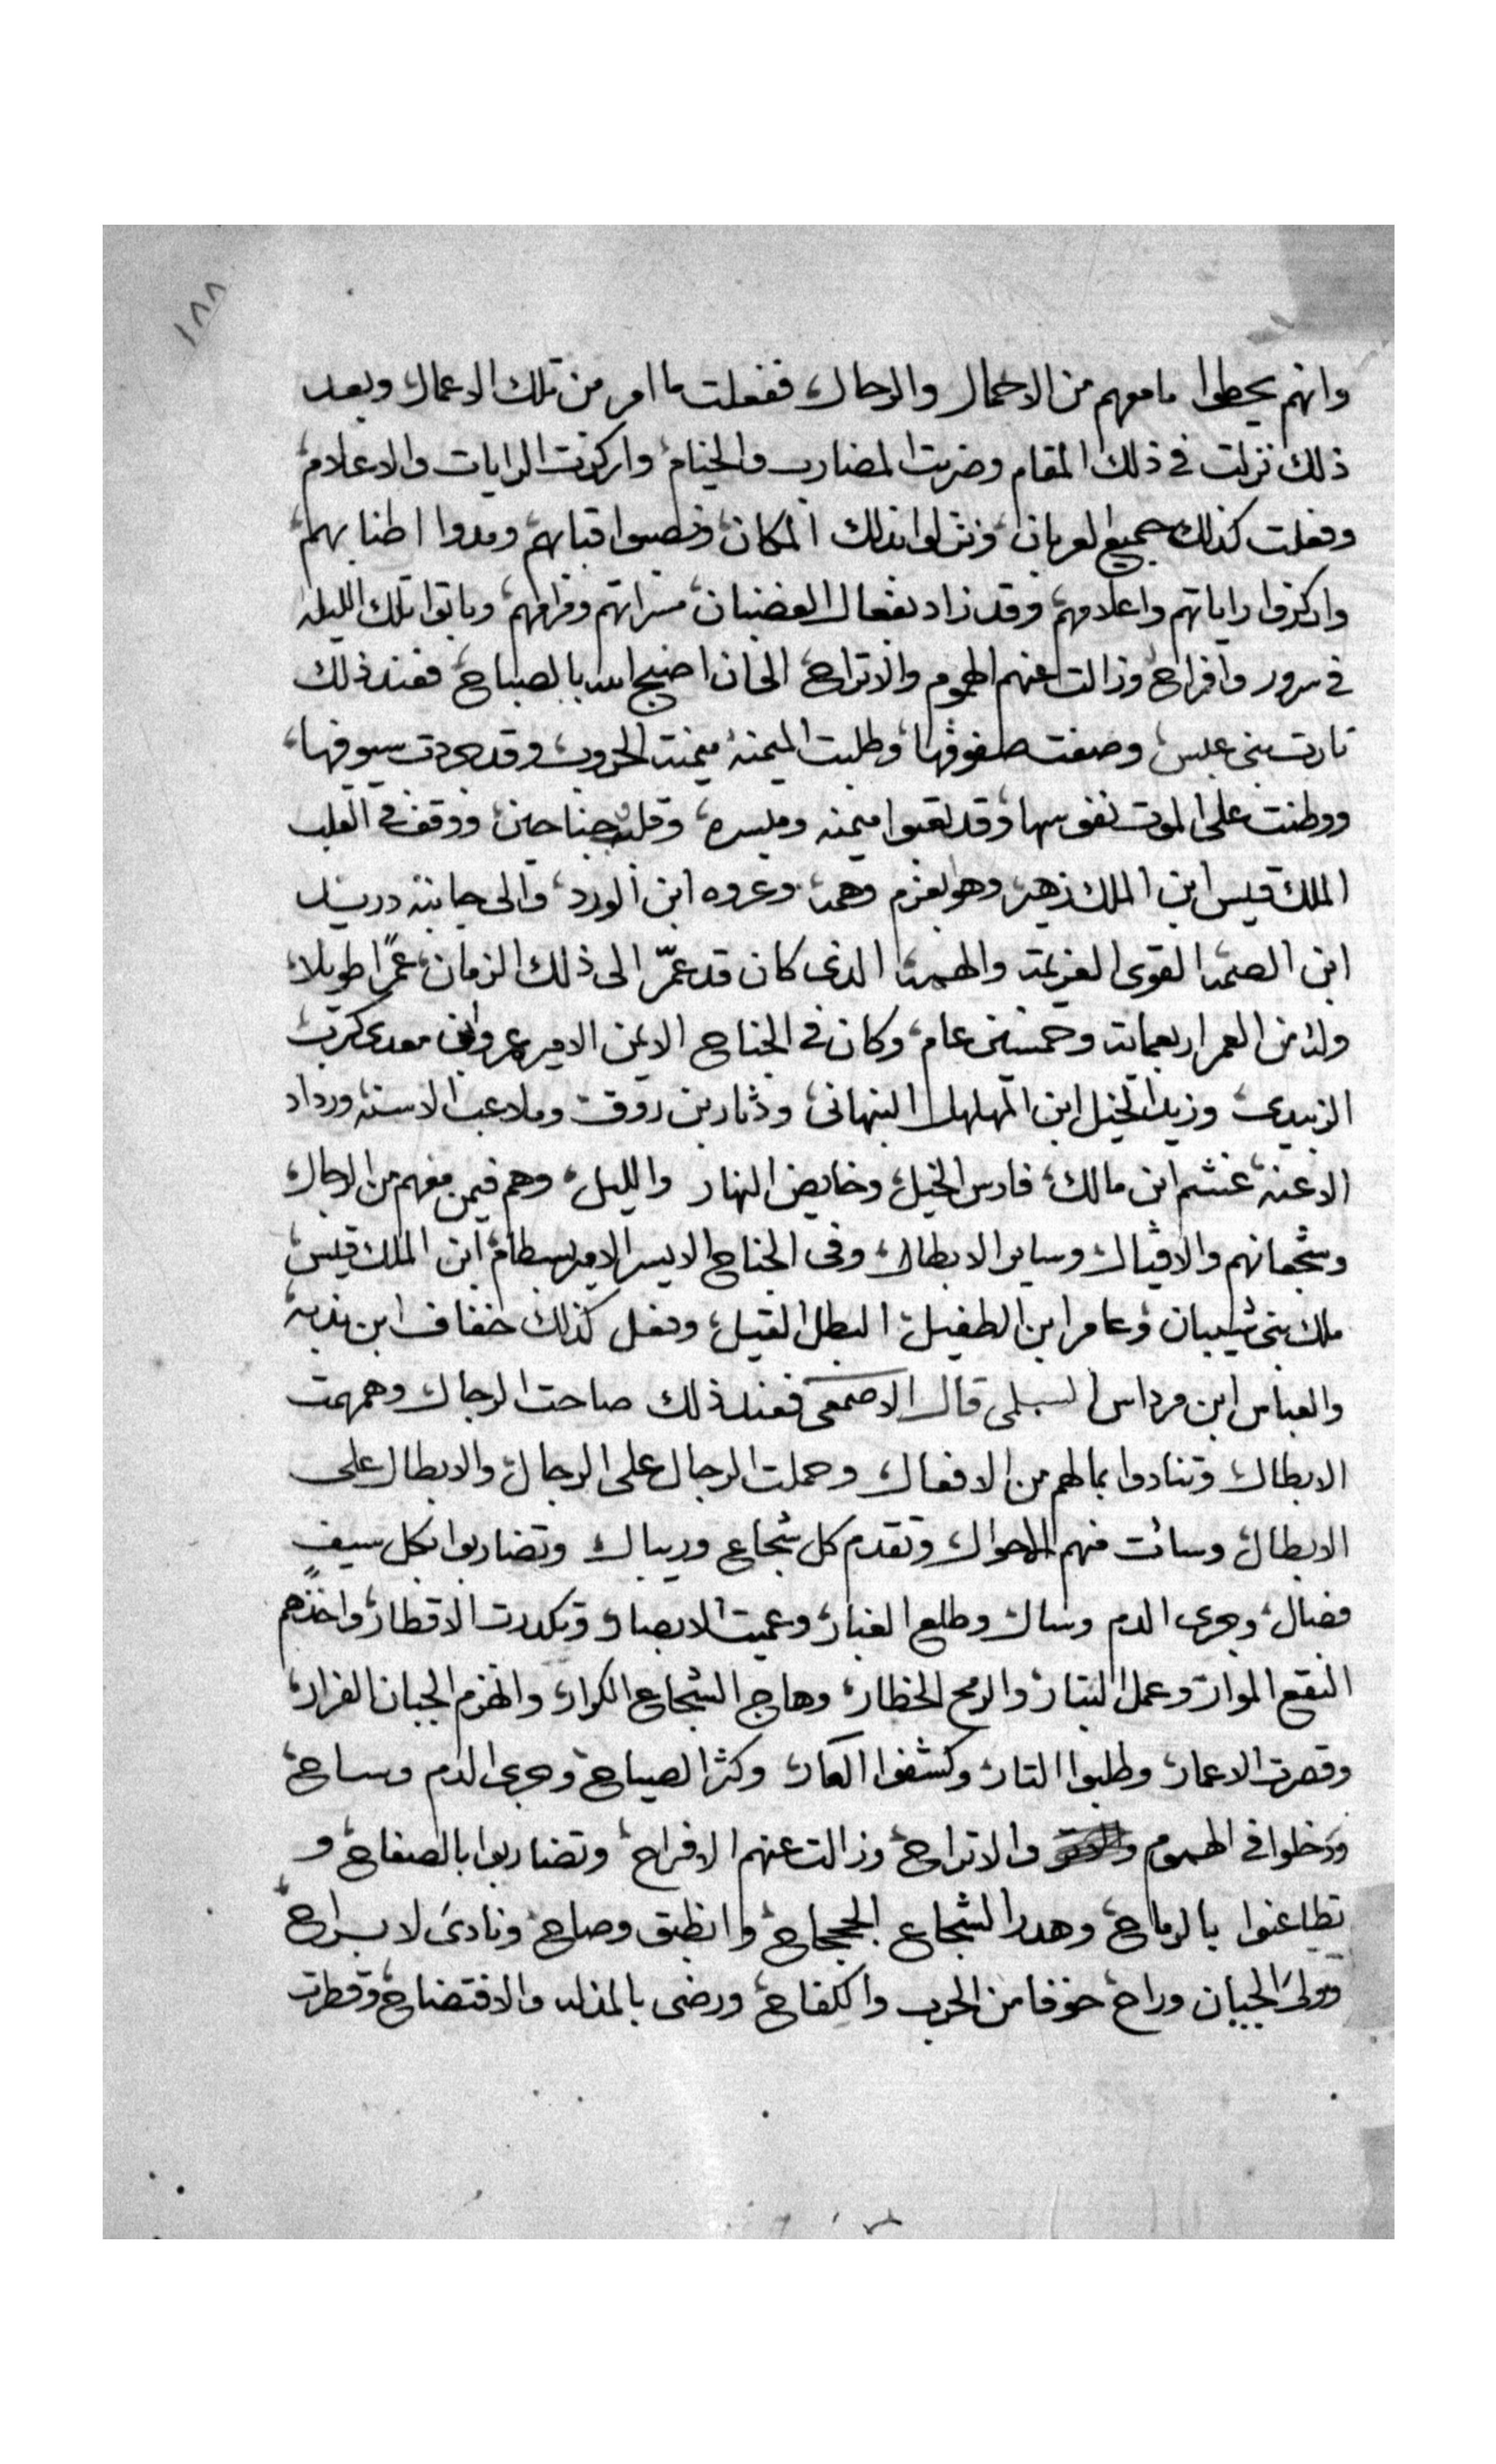 ١٨٨
وانهم يحطوا ما معهم من الاحمال والرحال، ففعلت ما امر من تلك الاعمال وبعد
ذلك نزلت في ذلك المقام وضربت المضارب والخيام، واركزت الرايات والاعلام،
وفعلت كذلك جميع العربان، ونزلوا بذلك المكان، ونصبوا قبابهم، ومدوا اطنابهم،
واركزوا راياتهم واعلامهم، وقد زاد بفعال الغضبان، مسراتهم وفرامهم، وباتوا تلك الليله
في سرور وافراح، وزالت عنهم الهموم والاتراح، الى ان اصبح الله بالصباح، فعند ذلك
ثارت بنى عبس، وصفت صفوفها، وطلبت الميمنه ميمنت الحروب، وقد جردت سيوفها،
ووطنت على الموت نفوسها، وقد لقبوا ميمنه وميسره، وقلب وجناحين، ووقف في القلب
الملك قيس ابن الملك زهير، وهو بعزم وهمة، وعروه ابن الورد، والى جانبه دريد
ابن الصمة القوى العزيمة والهمة الذى كان قد عمّر الى ذلك الزمان، عمرًا طويلا،
وله من العمر اربعماية وخمسين عام، وكان في الجناح الايمن الامير عمرو ابن معدى كرب
الزبيدى، وزيد الخيل ابن المهلهل النبهانى، ودثار بن روق، وملاعب الاسنه، ورداد
الاعنه، غشم ابن مالك، فارس الخيل، وخايض النهار والليل، وهم فيمن معهم من الرجال،
وشجعانهم والاقيال، وساير الابطال، وفى الجناح الايسر الامير بسطام، ابن الملك قيس،
ملك بنى شيبان، وعامر ابن الطفيل، البطل القيل، وفعل كذلك خفاف ابن ندبه
والعباس ابن مرداس السلمى قال الاصمعى فعند ذلك صاحت الرجال وهمهمت
الابطال وتنادوا بمالهم من الافعال، وحملت الرجال على الرجال، والابطال على
الابطال، وسائت منهم الاحوال، وتقدم كل شجاع وريبال، وتضاربوا بكل سيفٍ
فصال، وجرى الدم وسال وطلع الغبار، وعميت الابصار وتكدرت الاقطار، واخذهم
النقع الموار، وعمل البتار، والرمح الخطار، وهاج الشجاع الكرار، وانهزم الجبان الفرار،
وقصرت الاعمار، وطلبوا التار، وكشفوا العار، وكثر الصياح، وجرى الدم وساح،
ودخلوا في الهموم والاتراح، وزالت عنهم الافراح، وتضاربوا بالصفاح، و
تطاعنوا بالرماح، وهدر الشجاع الججاح، وانطبق وصاح، ونادى لا براح،
وولى الجبان وراح، خوفا من الحرب والكفاح، ورضى بالمذله والافتضاح، وقطرت